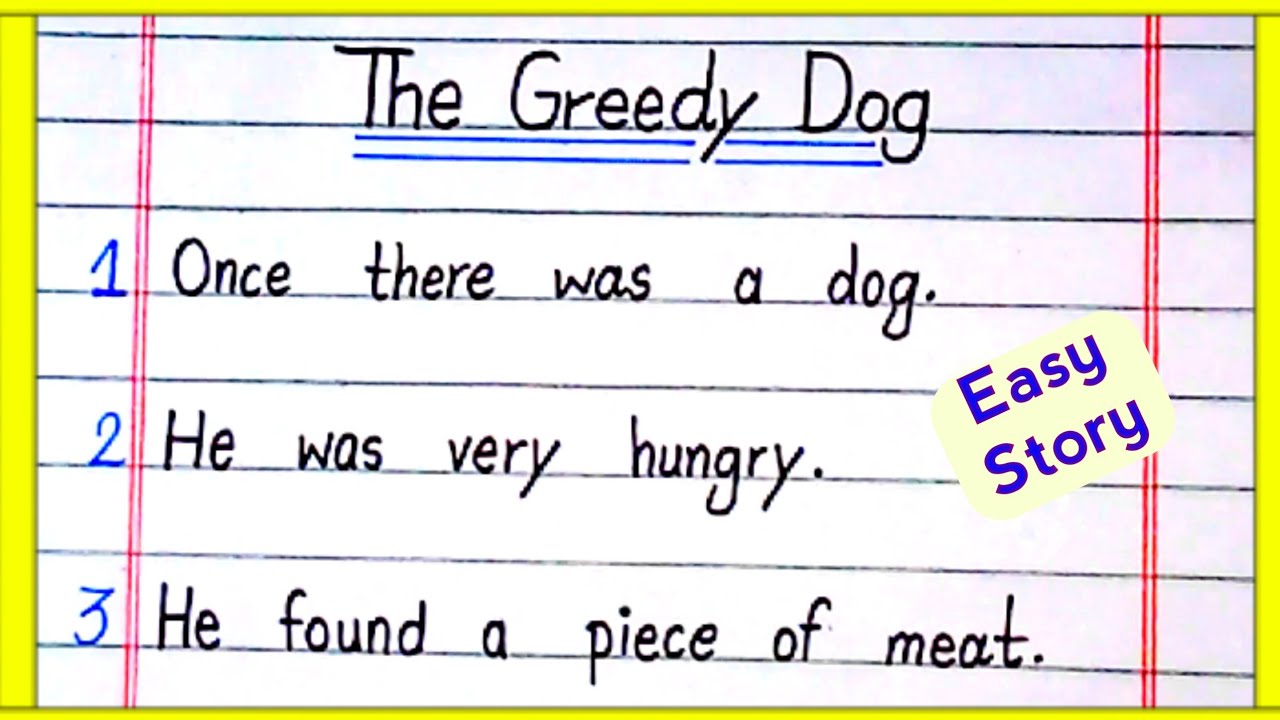 The Greedy Dog
1 Once there was a dog.
2 He was very hungry.
3 He found a piece of meat.
Easy
Story